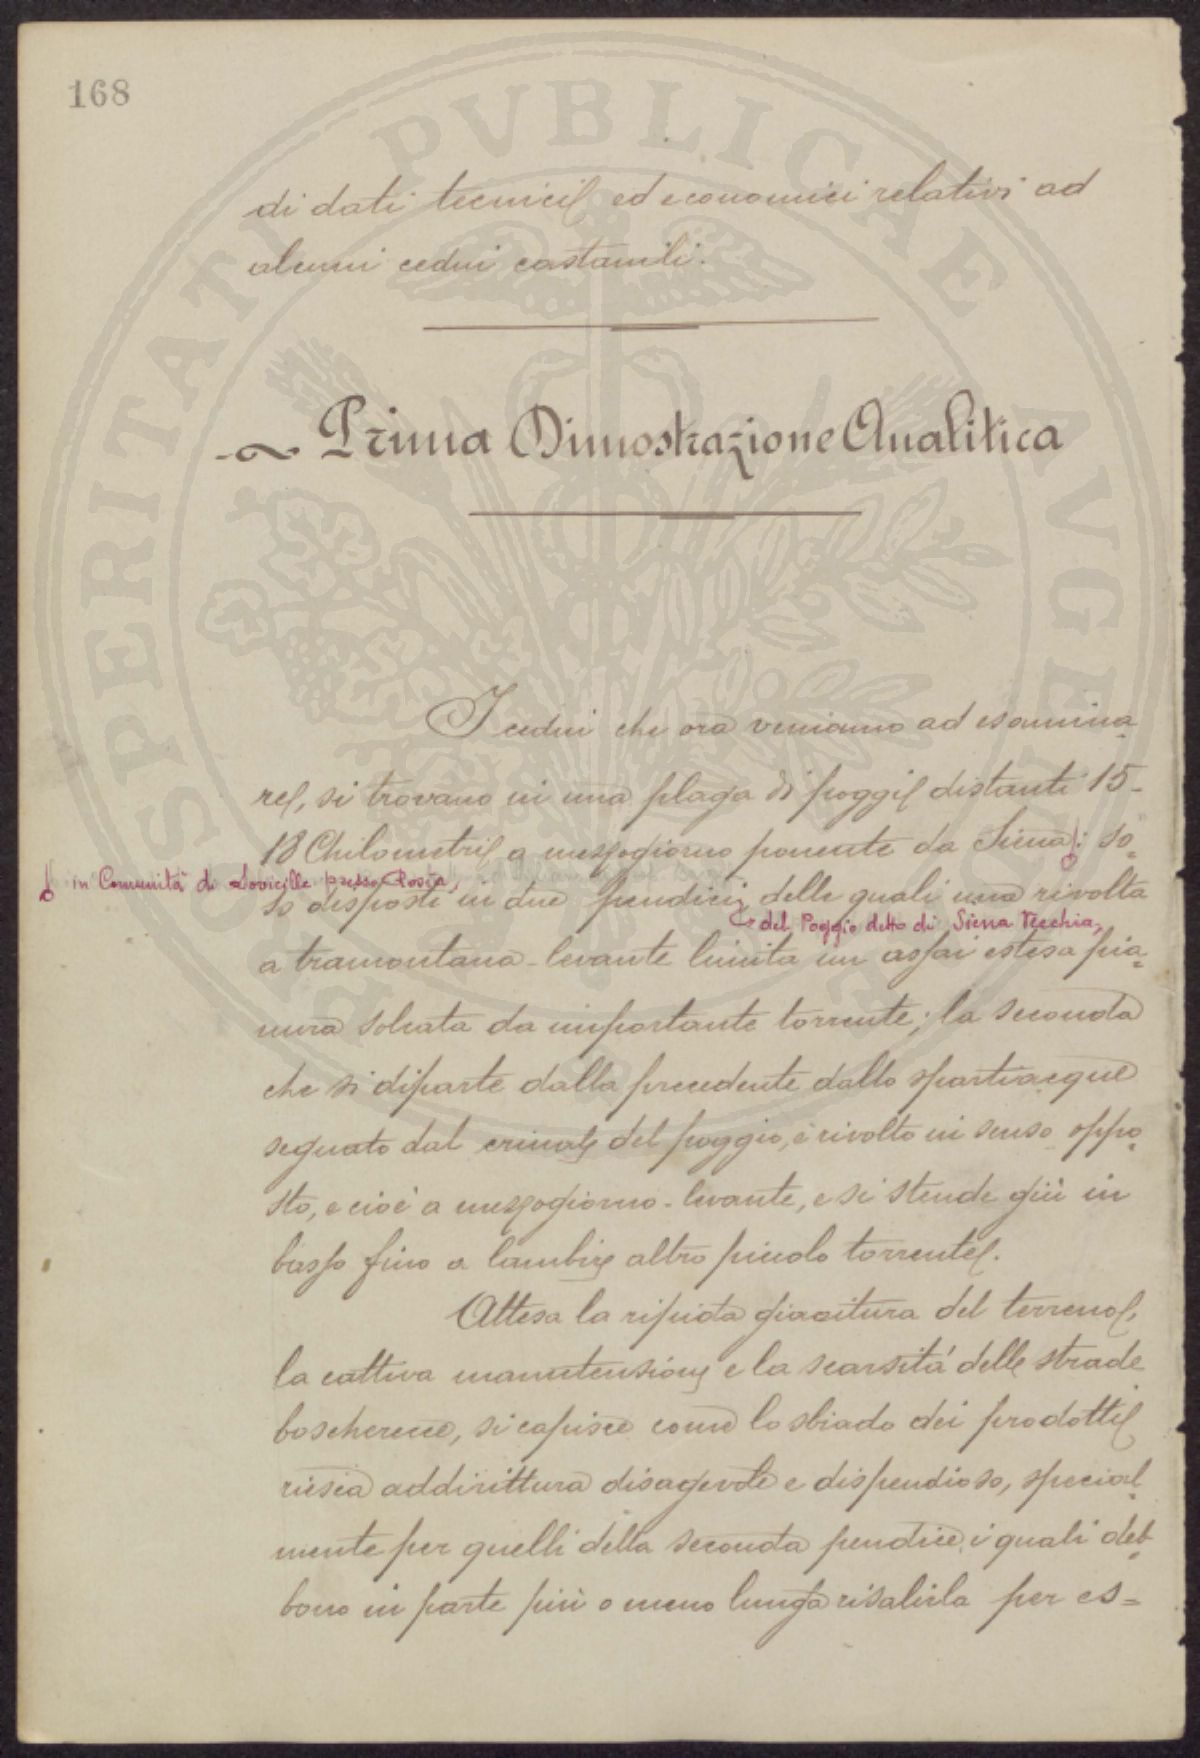 168
di dati tecnici ed economici relativi ad
alcuni cedui castanili.
Prima Dimostrazione Analitica
I cedui che ora veniamo ad esamina=
re, si trovano in una plaga di poggi distanti 15-
18 Chilometri a mezzogiorno ponente da Siena: So=
in Comunità di Sovicille presso Rosia,
no disposti in due pendici, delle quali una rivolta
del Poggio detto di Siena Vecchia,
a tramontana-levante limita un assai estesa pia=
nura solcata da importante torrente; la seconda
che si diparte dalla precedente dallo spartiacque
segnato dal crinale del poggio, è rivolto in senso oppo=
sto, e cioè a mezzogiorno-levante, e si stende giù in
basso fino a lambire altro piccolo torrente.
Attesa la ripida giacitura del terreno,
la cattiva manutensione e la scarsità delle strade
boscherecce, si capisce come lo sbiado dei prodotti
riesca addirittura disagevole e dispendioso, special=
mente per quelli della seconda pendice, i quali deb=
bono in parte più o meno lunga risalirla per es=
PROSPERITATI PVBLICAE AVGENDAE